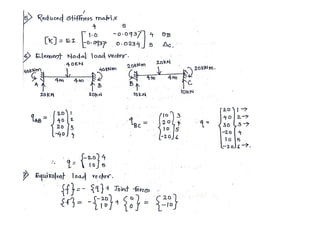 5) Reduced stiffness matrix
4 5
[K] = EI [1.0 -0.0937] 4 θB
[-0.0937 0.0234] 5 Δc.
6) Element Nodal load vector.
40KN 20KN
40KNm 40KNm 20KNm 20KNm.
A 4m 4m B B 4m 4m C
20KN 20KN 10KN 10KN
qAB = {20} 1
{40} 2
{20} 3
{-40} 4
qBC = {10} 3
{20} 4
{10} 5
{-20} 6
q = {20} 1 →
{40} 2 →
{30} 3 →
{-20} 4
{10} 5
{-20} 6 →.
∴ q = {-20} 4
{10} 5
7) Equivalent load vector.
{f} = - {q} + Joint forces
{f} = - {-20} + {0} = {20}
{10} {0} {-10}